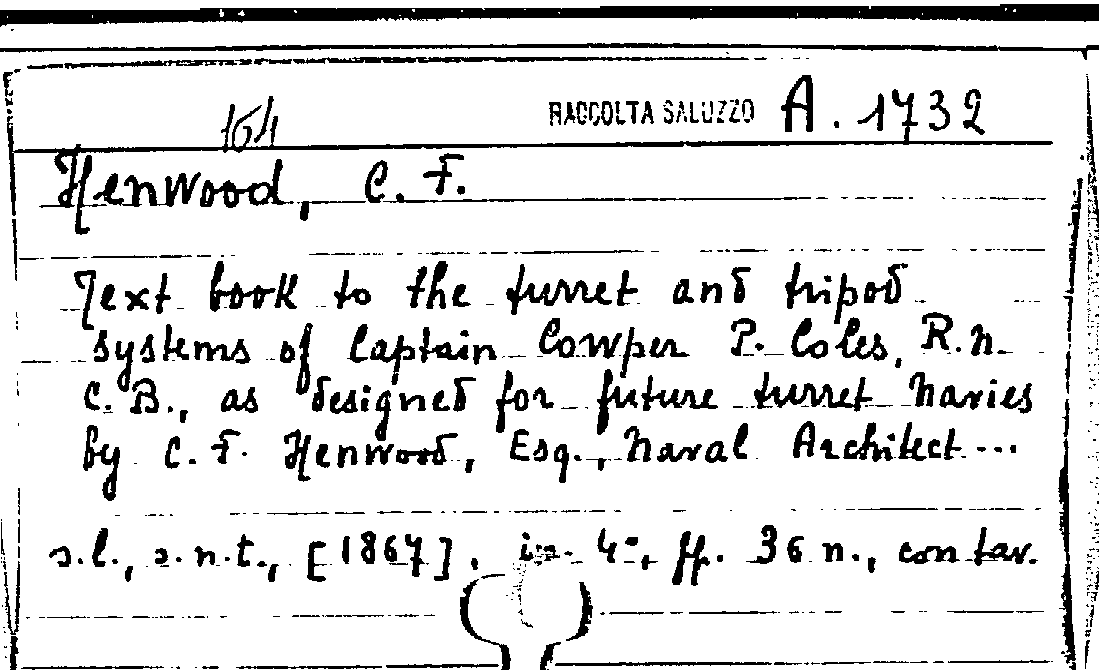 164
RACCOLTA SALUZZO A. 1732
Henwood, C. F.
Text book to the turret and tripod
systems of Captain Cowper P. Coles, R.N.
C.B., as designed for future turret navies
by C. F. Henwood, Esq., Naval Architect...
s.l., s.n.t., [1867]. in-4°, ff. 36 n., con tav.